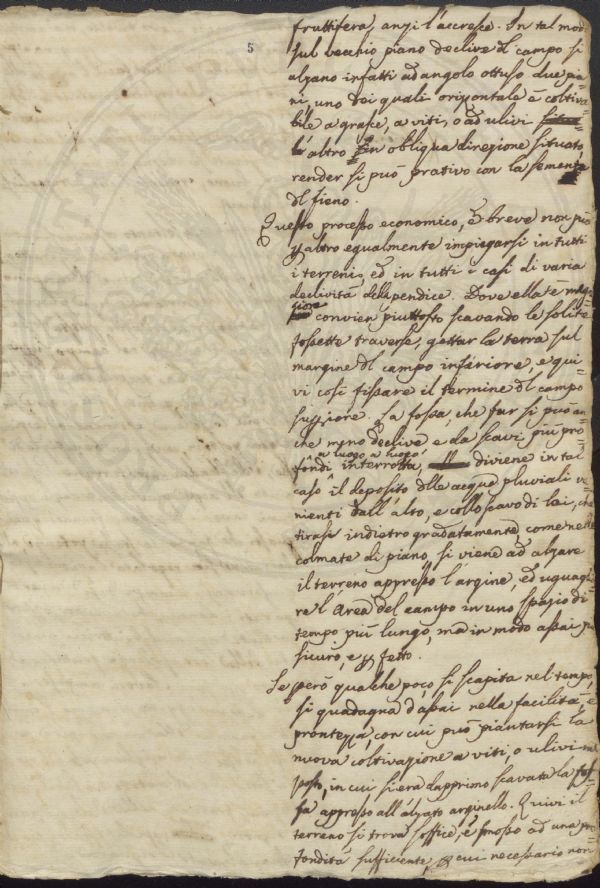 5
fruttifera, anzi l'accresce. In tal mod
sul vecchio piano declive dl campo si
alzano infatti ad angolo ottuso due pia=
ni, uno dei quali orizzontale è coltiva=
bile a grasce, a viti, o ad ulivi
l'altro in obliqua direzione situato
render si può prativo con la sementa
dl fieno.
Questo processo economico, e breve non può
p altro egualmente impiegarsi in tutti
i terreni, ed in tutti i casi di varia
declività della pendice. Dove ella è mag=
giore convien piuttosto scavando le solite
fossette traverse, gettar la terra sul
margine dl campo inferiore, e qui=
vi così fissare il termine dl campo
supiore. La fossa, che far si può an=
che meno declive e da scavi più pro=
fondi a luogo a luogo interrotta, diviene in tal
caso il deposito dlle acque pluviali ve=
nienti dall'alto, e collo scavo di lei, che
tirasi indietro gradatamente come nelle
colmate di piano, si viene ad alzare
il terreno appresso l'argine, ed uguaglia=
re l'area del campo in uno spazio di
tempo più lungo, ma in modo assai più
sicuro, e pfetto.
Se però qualche poco si scapita nel tempo,
si guadagna d'assai nella facilità, e
prontezza, con cui può piantarsi la
nuova coltivazione a viti, o ulivi nel
posto, in cui si era dapprimo scavata la fos=
sa appresso all'alzato arginello. Quivi il
terreno si trova soffice, e smosso ad una pro=
fondità sufficiente, p cui necessario non